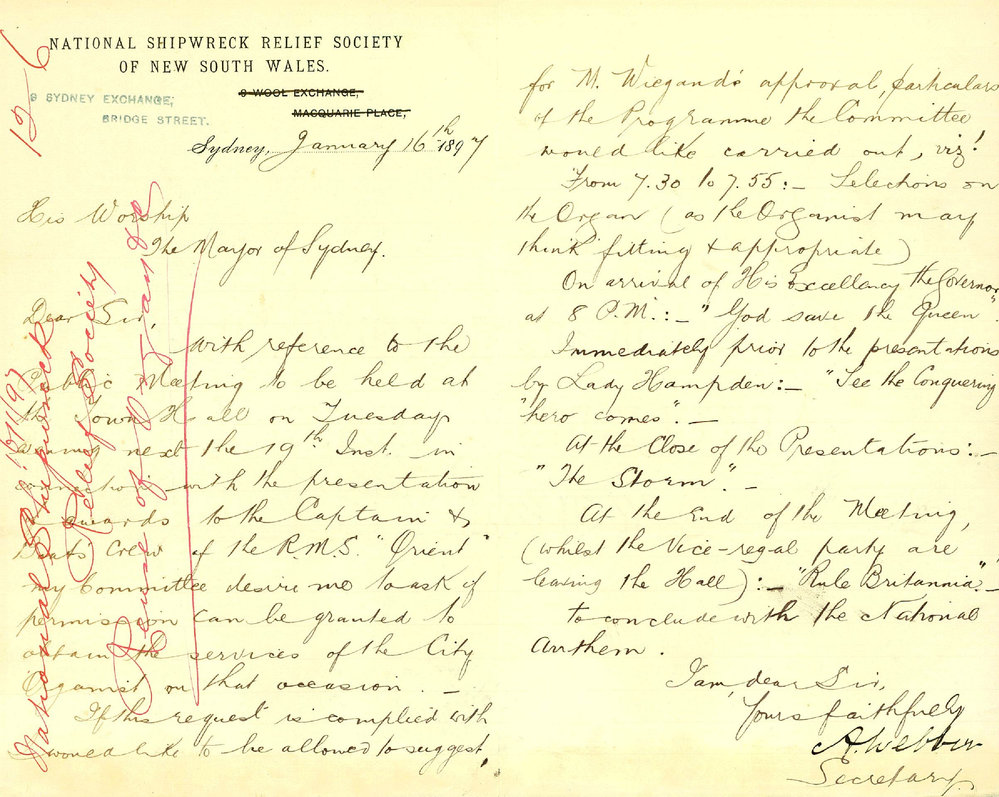 NATIONAL SHIPWRECK RELIEF SOCIETY
OF NEW SOUTH WALES.
9 WOOL EXCHANGE,
MACQUARIE PLACE,
9 SYDNEY EXCHANGE,
BRIDGE STREET.
Sydney, January 16th 1897
His Worship
The Mayor of Sydney.
Dear Sir,
With reference to the
Public Meeting to be held at
the Town Hall on Tuesday
evening next the 19th Inst. in
connection with the presentation
of awards to the Captain &
Boats Crew of the R.M.S. "Orient"
my Committee desire me to ask if
permission can be granted to
obtain the services of the City
Organist on that occasion. —
If this request is complied with
would like to be allowed to suggest,
for M. Wiegand's approval, particulars
of the Programme the Committee
would like carried out, viz!
From 7.30 to 7.55:— Selections on
the Organ (as the Organist may
think fitting & appropriate)
On arrival of His Excellency the Governor
at 8 P.M.:— "God save the Queen".
Immediately prior to the presentations
by Lady Hampden:— "See the Conquering
"hero comes". —
At the Close of the Presentations:—
"The Storm". —
At the End of the Meeting,
(whilst the Vice-regal party are
leaving the Hall):— "Rule Britannia". —
to conclude with the National
Anthem.
I am, dear Sir,
Yours faithfully
A. Webber
Secretary.
National Shipwreck
Relief Society
use of Organ
16/1/97